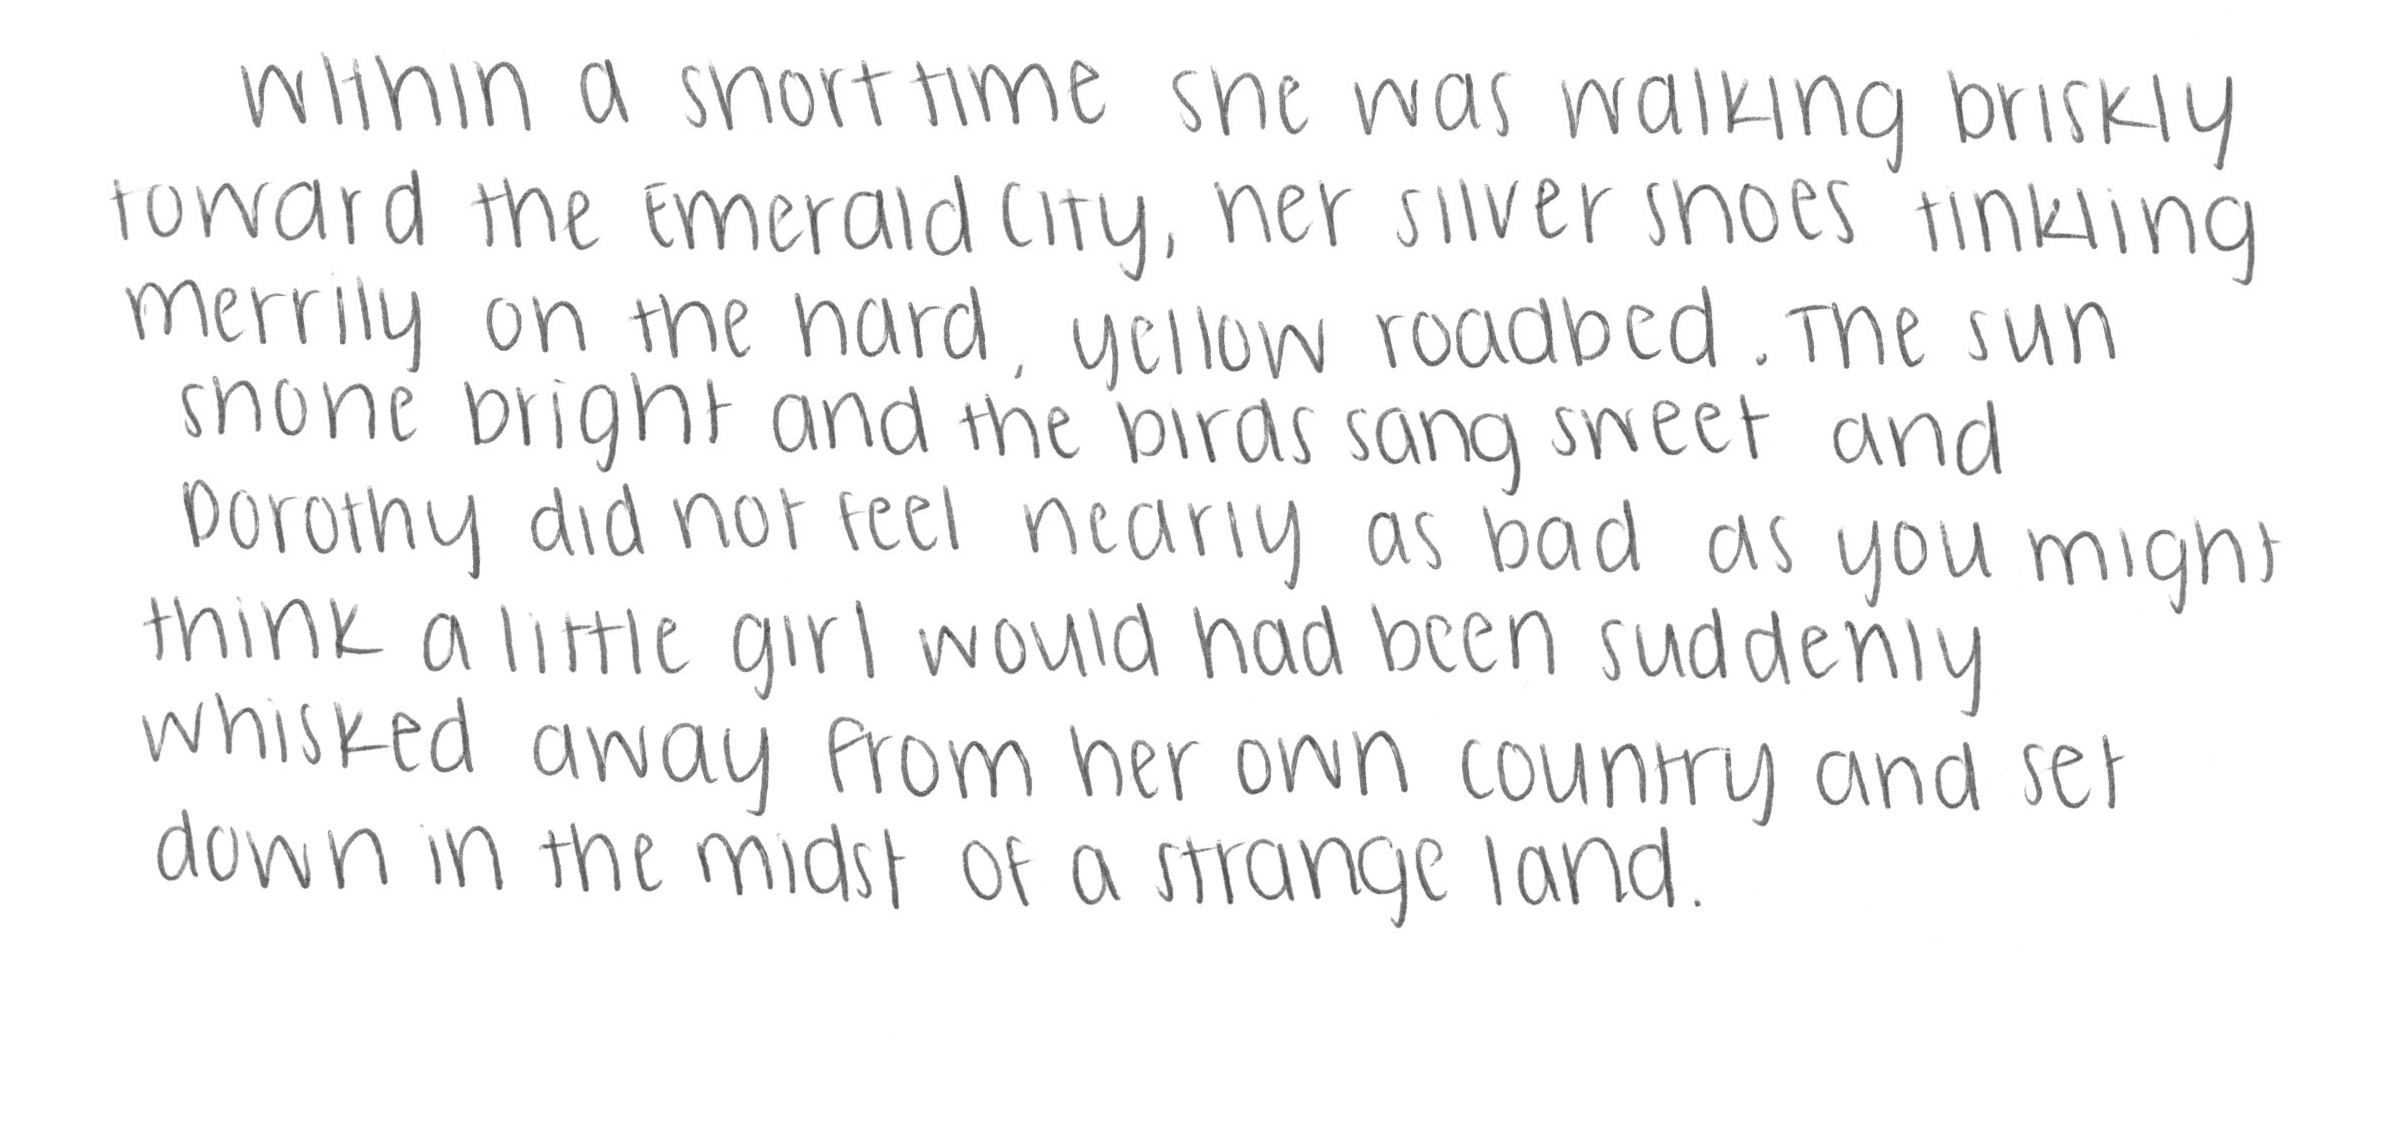 Within a short time she was walking briskly
toward the Emerald City, her silver shoes tinkling
merrily on the hard, yellow roadbed. The sun
shone bright and the birds sang sweet and
Dorothy did not feel nearly as bad as you might
think a little girl would had been suddenly
whisked away from her own country and set
down in the midst of a strange land.